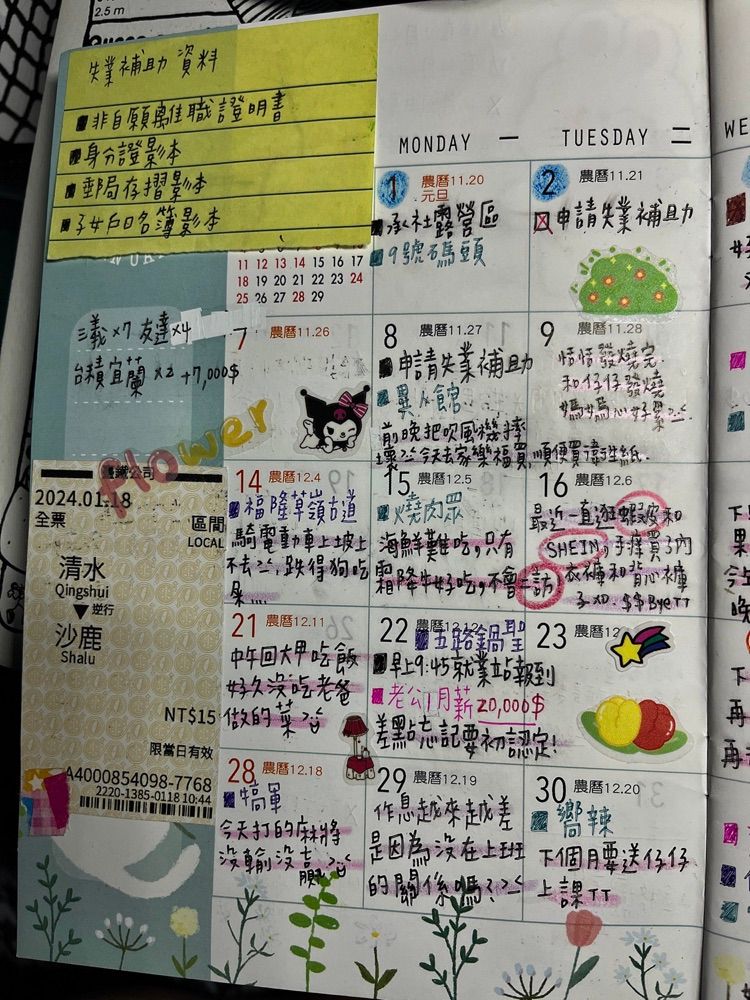 2.5 m
失業補助 資料
非自願離職證明書
身分證影本
郵局存摺影本
子女戶口名簿影本
MONDAY 一
TUESDAY 二
WE
11 12 13 14 15 16 17
18 19 20 21 22 23 24
25 26 27 28 29
三義 x7 友達 x4
台積宜蘭 x2 +7,000$
flower
1 農曆11.20
元旦
露營區
9號碼頭
2 農曆11.21
申請失業補助
7 農曆11.26
8 農曆11.27
申請失業補助
異人館
前晚把吹風機摔
壞>.<今天去家樂福買,順便買衛生紙.
9 農曆11.28
恬恬發燒完
和仔仔發燒
媽媽心好累>.<
14 農曆12.4
福隆草嶺古道
騎電動車上坡上
不去>.<,跌得狗吃
屎
15 農曆12.5
燒肉眾
海鮮難吃,只有
霜降牛好吃,不會二訪
16 農曆12.6
最近一直逛蝦皮和
SHEIN,手癢買了內
衣褲和背心褲
子XD $$ByeTT
21 農曆12.11
中午回大甲吃飯
好久沒吃老爸
做的菜
22 農曆12.12
五路鍋聖
早上9:45就業站報到
老公1月薪20,000$
差點忘記要初認定!
23 農曆12
28 農曆12.18
犒軍
今天打的麻將
沒輸沒贏>.<
29 農曆12.19
作息越來越差
是因為沒在上班
的關係嗎?>.<
30 農曆12.20
嚮辣
下個月要送仔仔
上課TT
臺鐵公司
2024.01.18
全票
區間
LOCAL
清水
Qingshui
▼逆行
沙鹿
Shalu
NT$15
限當日有效
A4000854098-7768
2220-1385-0118 10:44